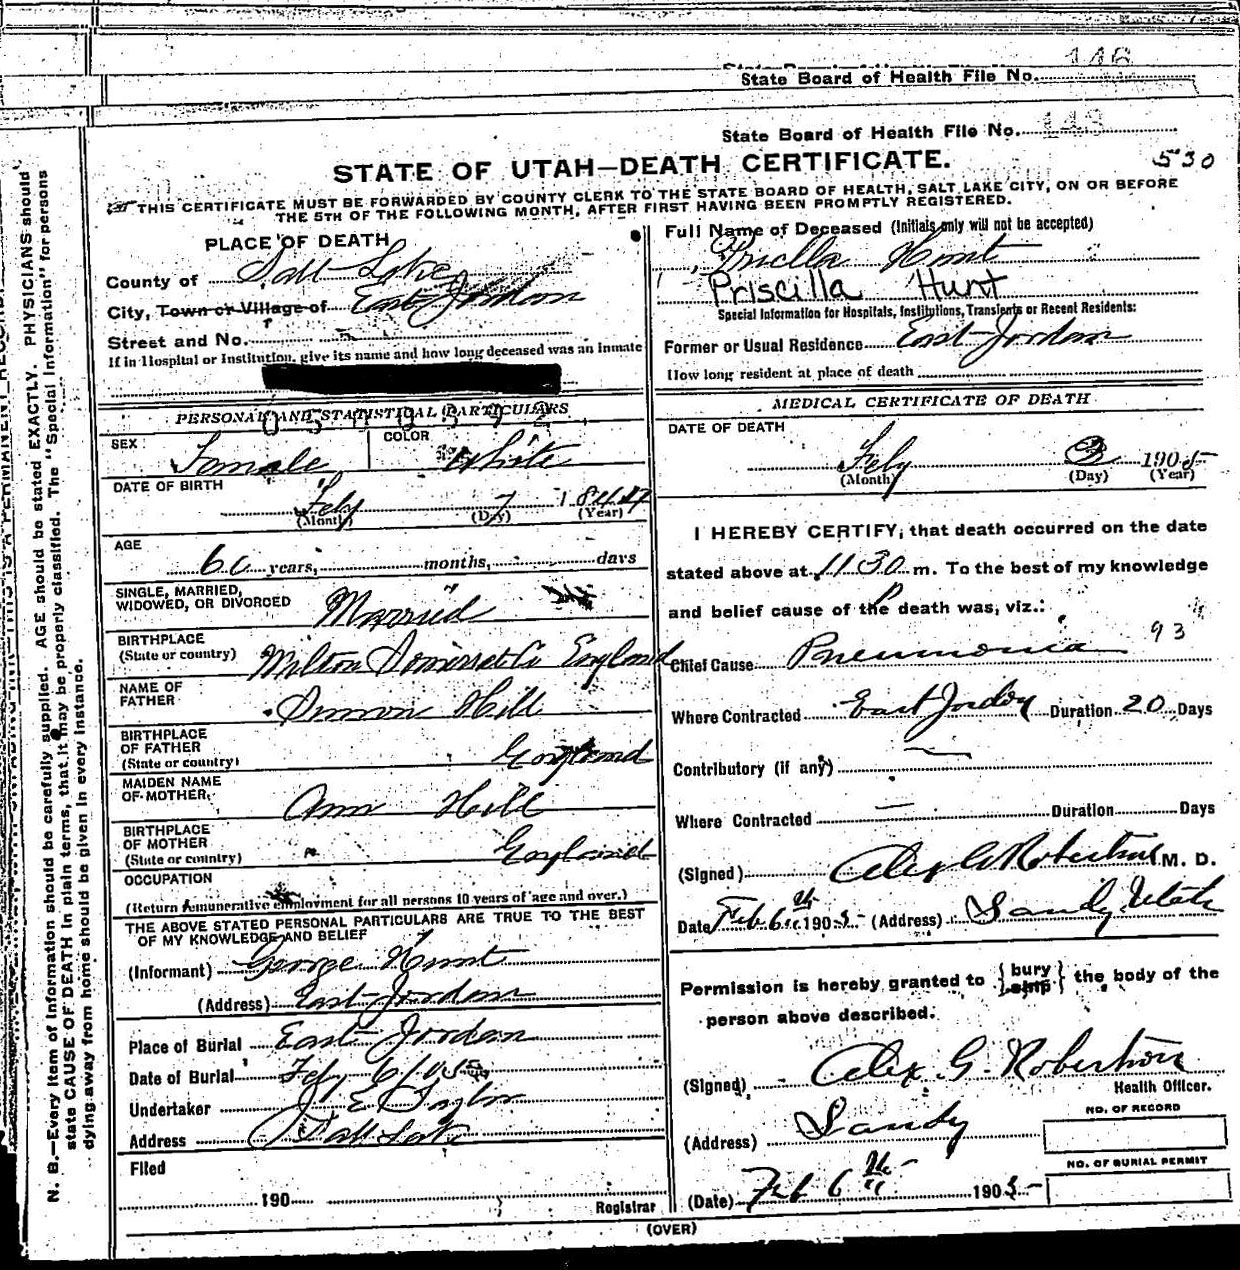 146
State Board of Health File No.
State Board of Health File No. 143
STATE OF UTAH—DEATH CERTIFICATE. 530
THIS CERTIFICATE MUST BE FORWARDED BY COUNTY CLERK TO THE STATE BOARD OF HEALTH, SALT LAKE CITY, ON OR BEFORE
THE 5TH OF THE FOLLOWING MONTH, AFTER FIRST HAVING BEEN PROMPTLY REGISTERED.
PLACE OF DEATH
County of Salt Lake
City, Town or Village of East Jordan
Street and No.
If in Hospital or Institution, give its name and how long deceased was an inmate
PERSONAL AND STATISTICAL PARTICULARS
SEX Female COLOR White
DATE OF BIRTH
Feby 7 1844
(Month) (Day) (Year)
AGE
60 years, months, days
SINGLE, MARRIED,
WIDOWED, OR DIVORCED Married
BIRTHPLACE
(State or country) Milton Somerset Co England
NAME OF
FATHER Simon Hill
BIRTHPLACE
OF FATHER
(State or country) England
MAIDEN NAME
OF MOTHER. Ann Hill
BIRTHPLACE
OF MOTHER
(State or country) England
OCCUPATION
(Return remunerative employment for all persons 10 years of age and over.)
THE ABOVE STATED PERSONAL PARTICULARS ARE TRUE TO THE BEST
OF MY KNOWLEDGE AND BELIEF
(Informant) George Hunt
(Address) East Jordan
Place of Burial East Jordan
Date of Burial Feby 6 1905
Undertaker J. E. Taylor
Address Salt Lake
Filed
190
Registrar
Full Name of Deceased (Initials only will not be accepted)
Priscilla Hunt
Special Information for Hospitals, Institutions, Transients or Recent Residents:
Former or Usual Residence East Jordan
How long resident at place of death
MEDICAL CERTIFICATE OF DEATH
DATE OF DEATH
Feby 3 1905
(Month) (Day) (Year)
I HEREBY CERTIFY, that death occurred on the date
stated above at 11 30 P m. To the best of my knowledge
and belief cause of the death was, viz.:
Chief Cause Pneumonia 93
Where Contracted East Jordan Duration 20 Days
Contributory (if any)
Where Contracted — Duration Days
(Signed) Alex G Robertson M. D.
Date Feb 6th 1905 (Address) Sandy Utah
Permission is hereby granted to {bury ship} the body of the
person above described.
(Signed) Alex. G. Robertson
Health Officer.
(Address) Sandy
NO. OF RECORD
NO. OF BURIAL PERMIT
(Date) Feb 6th 1905
(OVER)
N. B.—Every item of information should be carefully supplied. AGE should be stated EXACTLY. PHYSICIANS should
state CAUSE OF DEATH in plain terms, that it may be properly classified. The "Special Information" for persons
dying away from home should be given in every instance.